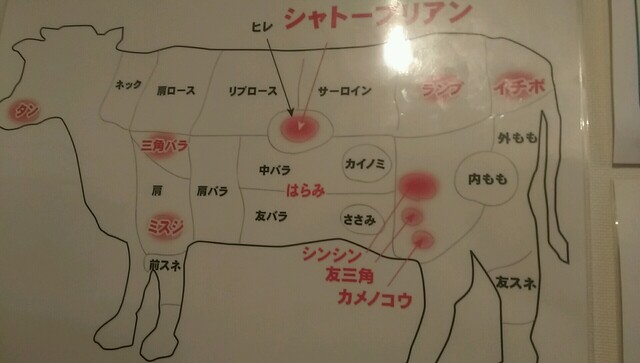 シャトーブリアン
ヒレ
ネック
肩ロース
リブロース
サーロイン
ランプ
イチボ
タン
三角バラ
中バラ
カイノミ
外もも
内もも
肩
肩バラ
はらみ
友バラ
ささみ
ミスジ
シンシン
友三角
カメノコウ
前スネ
友スネ